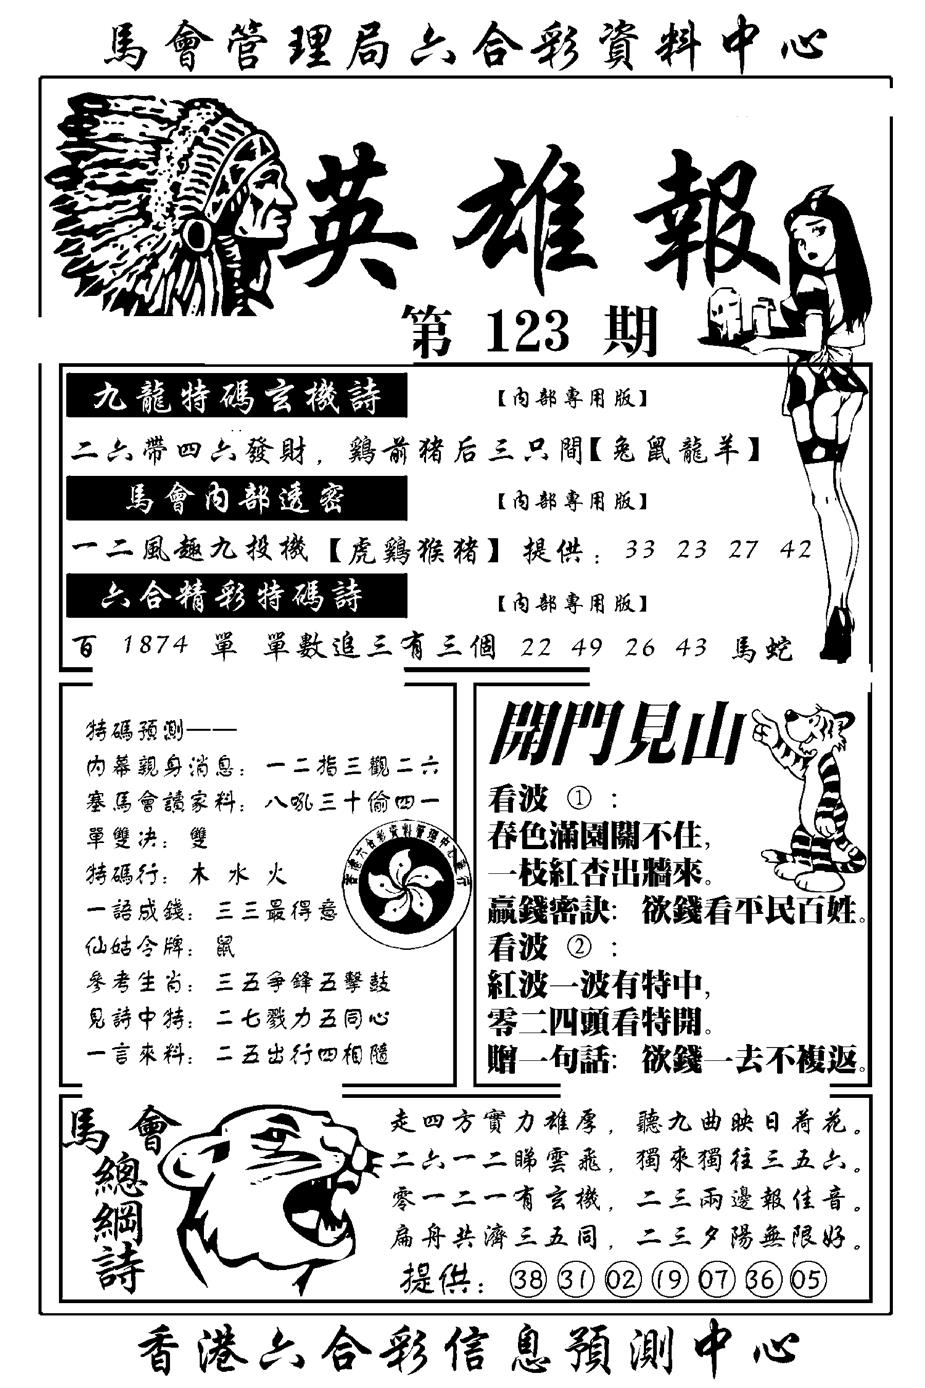 馬會管理局六合彩資料中心
英雄報
第 123 期
九龍特碼玄機詩 【內部專用版】
二六帶四六發財，鷄前猪后三只間【兔鼠龍羊】
馬會內部透密 【內部專用版】
一二風趣九投機【虎鷄猴猪】 提供：33 23 27 42
六合精彩特碼詩 【內部專用版】
百 1874 單 單數追三有三個 22 49 26 43 馬蛇
特碼預測——
內幕親身消息：一二指三觀二六
塞馬會讀家料：八吼三十偷四一
單雙决：雙
特碼行：木 水 火
一語成錢：三三最得意
仙姑令牌：鼠
參考生肖：三五争鋒五擊鼓
見詩中特：二七戮力五同心
一言來料：二五出行四相隨
開門見山
看波 ①：
春色滿園關不住，
一枝紅杏出牆來。
贏錢密訣：欲錢看平民百姓。
看波 ②：
紅波一波有特中，
零二四頭看特開。
贈一句話：欲錢一去不複返。
馬會
總綱詩
走四方實力雄厚，聽九曲映日荷花。
二六一二睇雲飛，獨來獨往三五六。
零一二一有玄機，二三兩邊報佳音。
扁舟共濟三五同，二三夕陽無限好。
提供：㊳ ㉛ 02 ⑲ 07 ㊱ 05
香港六合彩信息預測中心